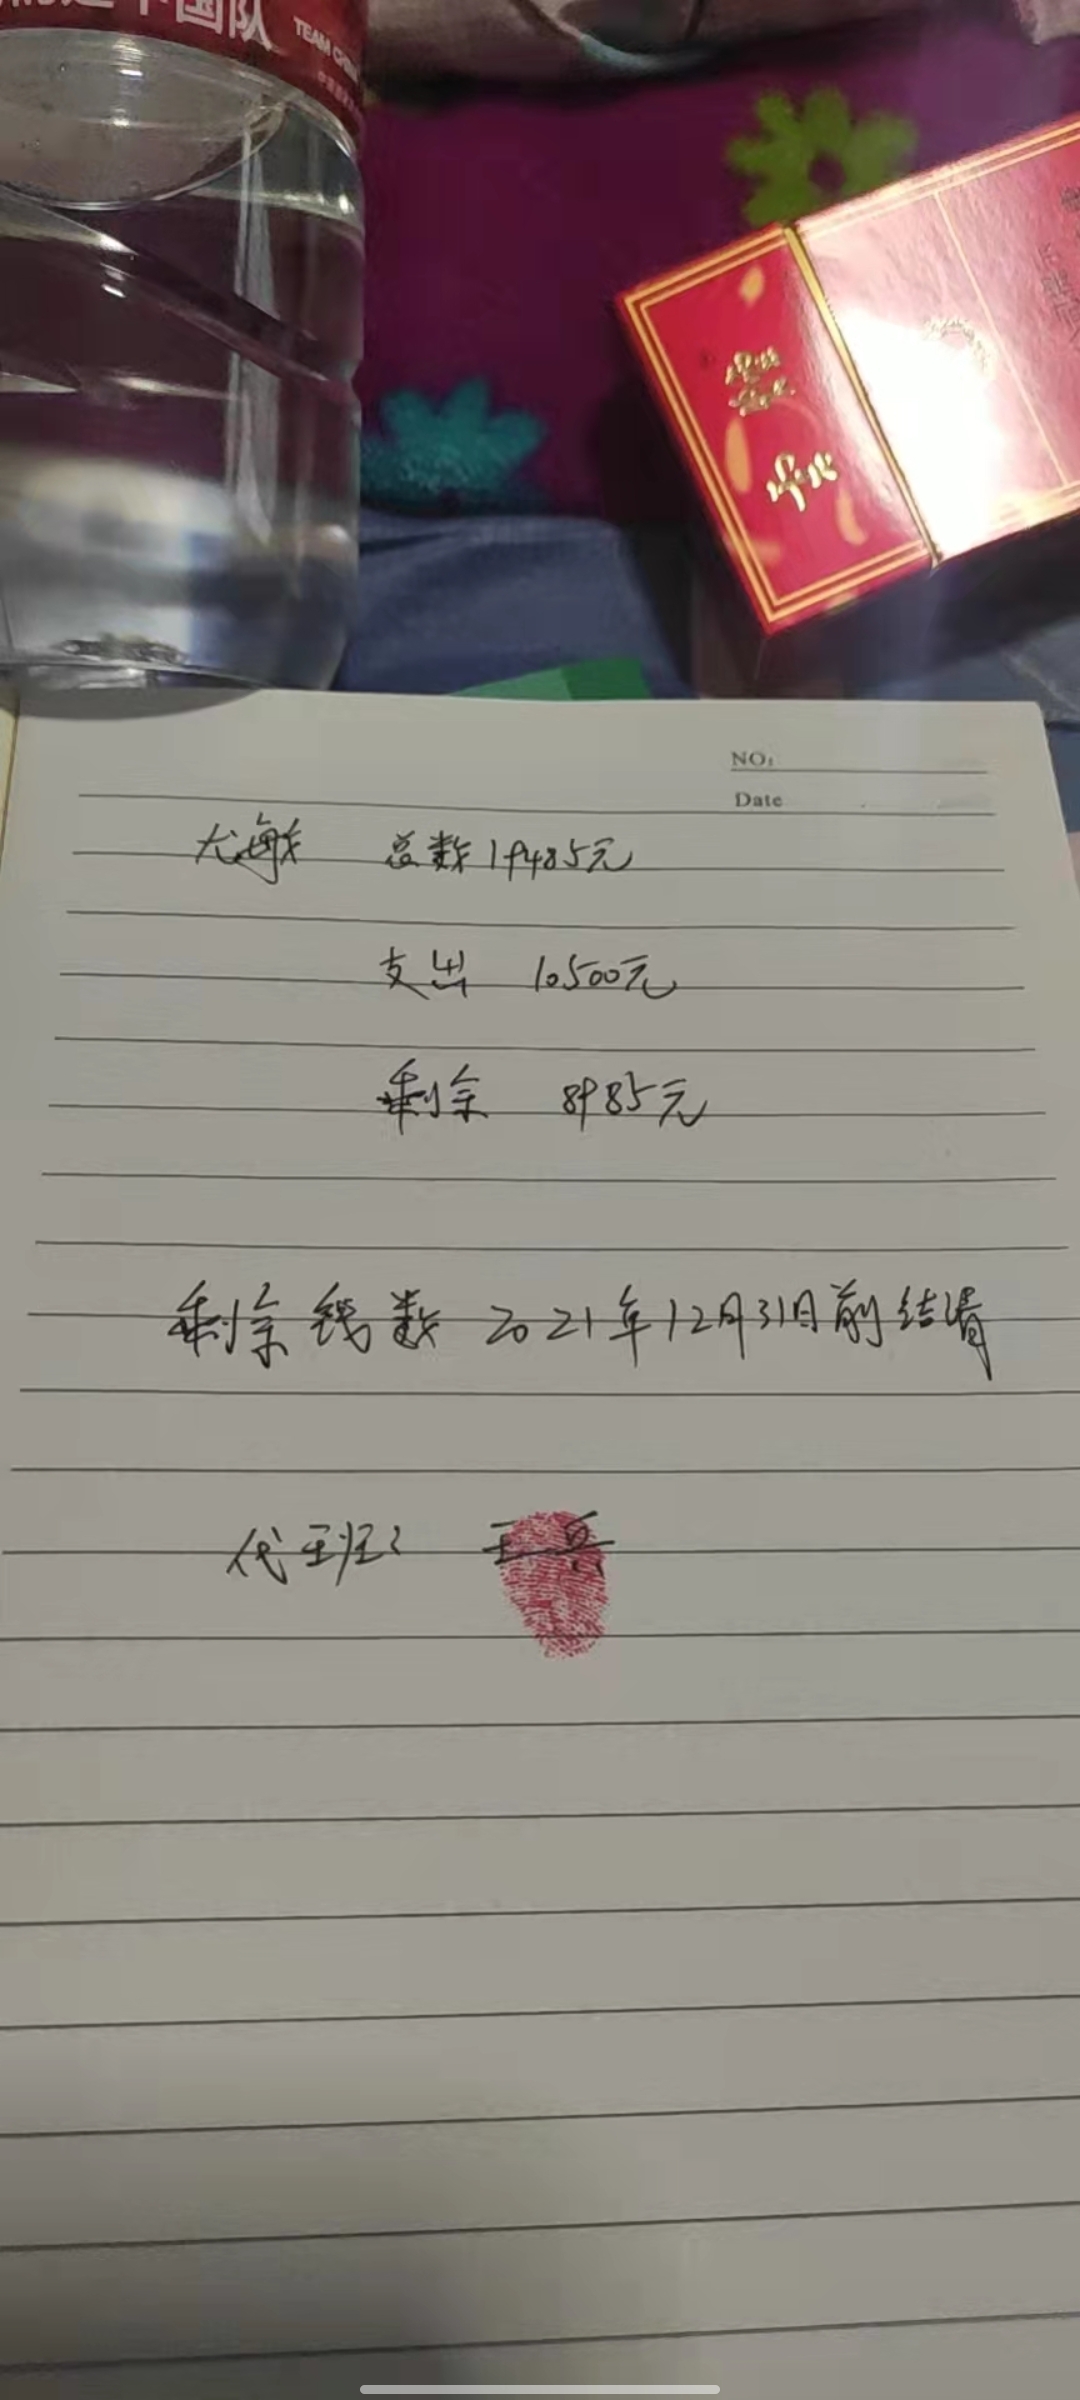 中国队
TEAM CHINA
NO:
Date
尤敏 总数19485元
支出 10500元
剩余 8985元
剩余钱数 2021年12月31日前结清
代班: 王兵